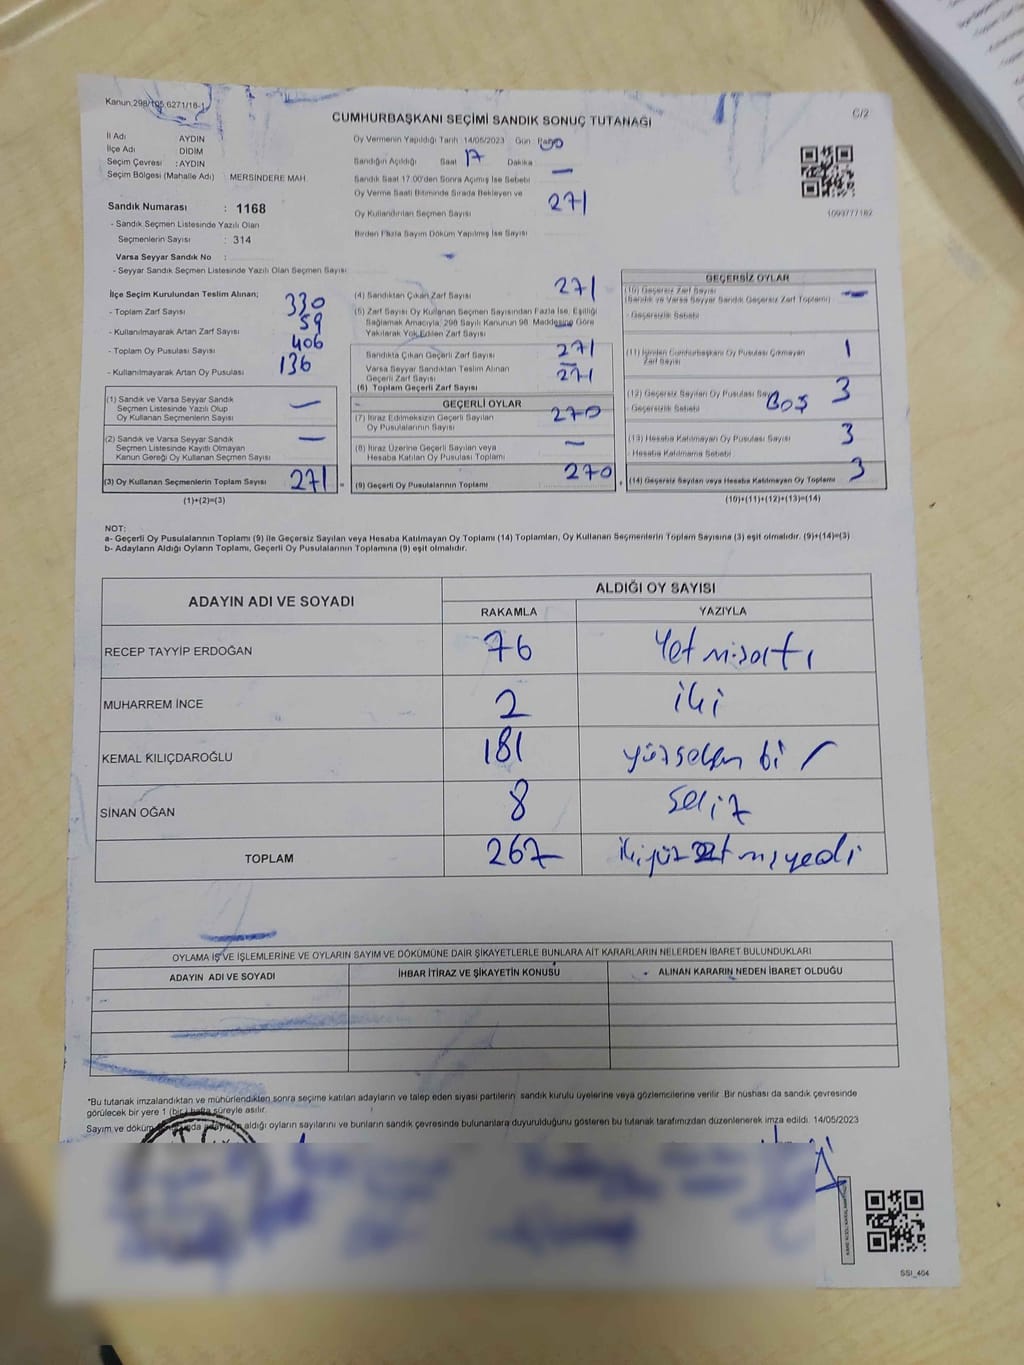 Kanun.298/105,6271/16-1
CUMHURBAŞKANI SEÇİMİ SANDIK SONUÇ TUTANAĞI
C/2
İl Adı AYDIN
İlçe Adı : DİDİM
Seçim Çevresi : AYDIN
Seçim Bölgesi (Mahalle Adı) : MERSİNDERE MAH
Sandık Numarası : 1168
- Sandık Seçmen Listesinde Yazılı Olan
Seçmenlerin Sayısı : 314
Varsa Seyyar Sandık No :
- Seyyar Sandık Seçmen Listesinde Yazılı Olan Seçmen Sayısı:
Oy Vermenin Yapıldığı Tarih :14/05/2023 Gün :
Sandığın Açıldığı Saat 17 Dakika —
Sandık Saat 17.00'den Sonra Açımış İse Sebebi
Oy Verme Saati Bitiminde Sırada Bekleyen ve
Oy Kullandırılan Seçmen Sayısı 271
Birden Fazla Sayım Döküm Yapılmış İse Sayısı
1093777182
İlçe Seçim Kurulundan Teslim Alınan;
- Toplam Zarf Sayısı 330
- Kullanılmayarak Artan Zarf Sayısı 59
- Toplam Oy Pusulası Sayısı 406
- Kullanılmayarak Artan Oy Pusulası 136
(1) Sandık ve Varsa Seyyar Sandık
Seçmen Listesinde Yazılı Olup
Oy Kullanan Seçmenlerin Sayısı —
(2) Sandık ve Varsa Seyyar Sandık
Seçmen Listesinde Kayıtlı Olmayan
Kanun Gereği Oy Kullanan Seçmen Sayısı —
(3) Oy Kullanan Seçmenlerin Toplam Sayısı 271
(1)+(2)=(3)
(4) Sandıktan Çıkan Zarf Sayısı 271
(5) Zarf Sayısı Oy Kullanan Seçmen Sayısından Fazla İse, Eşitliği
Sağlamak Amacıyla, 298 Sayılı Kanunun 98. Maddesine Göre
Yakılarak Yok Edilen Zarf Sayısı —
Sandıkta Çıkan Geçerli Zarf Sayısı 271
Varsa Seyyar Sandıktan Teslim Alınan
Geçerli Zarf Sayısı —
(6) Toplam Geçerli Zarf Sayısı 271
GEÇERLİ OYLAR
(7) İtiraz Edilmeksizin Geçerli Sayılan
Oy Pusulalarının Sayısı 270
(8) İtiraz Üzerine Geçerli Sayılan veya
Hesaba Katılan Oy Pusulası Toplamı —
(9) Geçerli Oy Pusulalarının Toplamı 270
GEÇERSİZ OYLAR
(10) Geçersiz Zarf Sayısı —
(Sandık ve Varsa Seyyar Sandık Geçersiz Zarf Toplamı)
- Geçersizlik Sebebi
(11) İçinden Cumhurbaşkanı Oy Pusulası Çıkmayan
Zarf Sayısı 1
(12) Geçersiz Sayılan Oy Pusulası Sayısı 3
- Geçersizlik Sebebi BOŞ
(13) Hesaba Katılmayan Oy Pusulası Sayısı 3
- Hesaba Katılmama Sebebi
(14) Geçersiz Sayılan veya Hesaba Katılmayan Oy Toplamı 3
(10)+(11)+(12)+(13)=(14)
NOT:
a- Geçerli Oy Pusulalarının Toplamı (9) ile Geçersiz Sayılan veya Hesaba Katılmayan Oy Toplamı (14) Toplamları, Oy Kullanan Seçmenlerin Toplam Sayısına (3) eşit olmalıdır. (9)+(14)=(3)
b- Adayların Aldığı Oyların Toplamı, Geçerli Oy Pusulalarının Toplamına (9) eşit olmalıdır.
ADAYIN ADI VE SOYADI
ALDIĞI OY SAYISI
RAKAMLA YAZIYLA
RECEP TAYYİP ERDOĞAN 76 Yetmişaltı
MUHARREM İNCE 2 iki
KEMAL KILIÇDAROĞLU 181 yüzseksen bir
SİNAN OĞAN 8 sekiz
TOPLAM 267 ikiyüz altmışyedi
OYLAMA İŞ VE İŞLEMLERİNE VE OYLARIN SAYIM VE DÖKÜMÜNE DAİR ŞİKAYETLERLE BUNLARA AİT KARARLARIN NELERDEN İBARET BULUNDUKLARI
ADAYIN ADI VE SOYADI İHBAR İTİRAZ VE ŞİKAYETİN KONUSU ALINAN KARARIN NEDEN İBARET OLDUĞU
*Bu tutanak imzalandıktan ve mühürlendikten sonra seçime katılan adayların ve talep eden siyasi partilerin sandık kurulu üyelerine veya gözlemcilerine verilir. Bir nüshası da sandık çevresinde
görülecek bir yere 1 (bir) hafta süreyle asılır.
Sayım ve döküm adayların aldığı oyların sayılarını ve bunların sandık çevresinde bulunanlara duyurulduğunu gösteren bu tutanak tarafımızdan düzenlenerek imza edildi. 14/05/2023
SSI_404